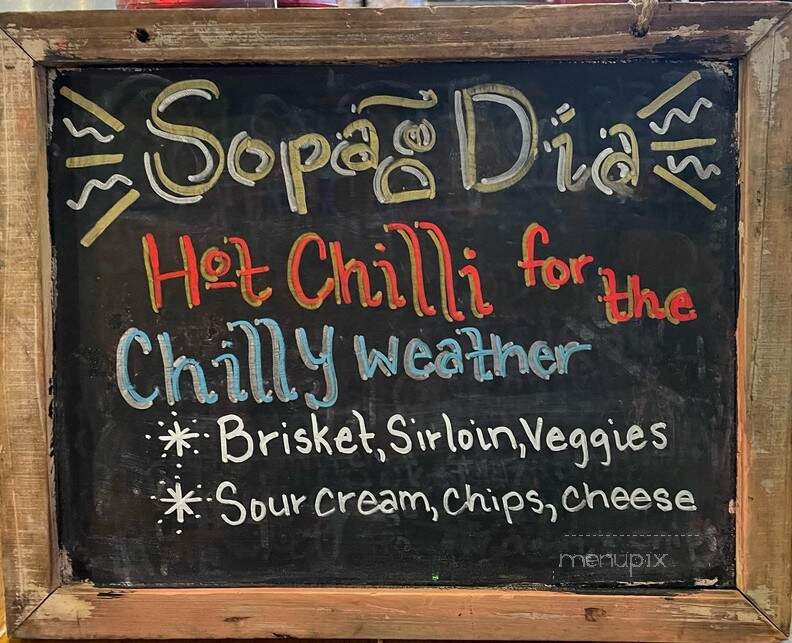 Sopa Do Día
Hot Chilli for the
Chilly weather
* Brisket, Sirloin, Veggies
* Sour cream, chips, cheese
menupix